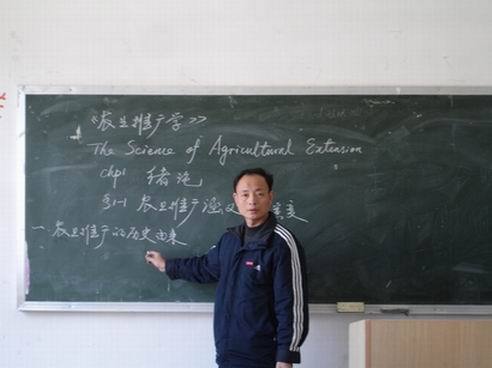 《农业推广学》
The Science of Agricultural Extension
chp1 绪论
§1-1 农业推广涵义 演变
一、农业推广的历史由来